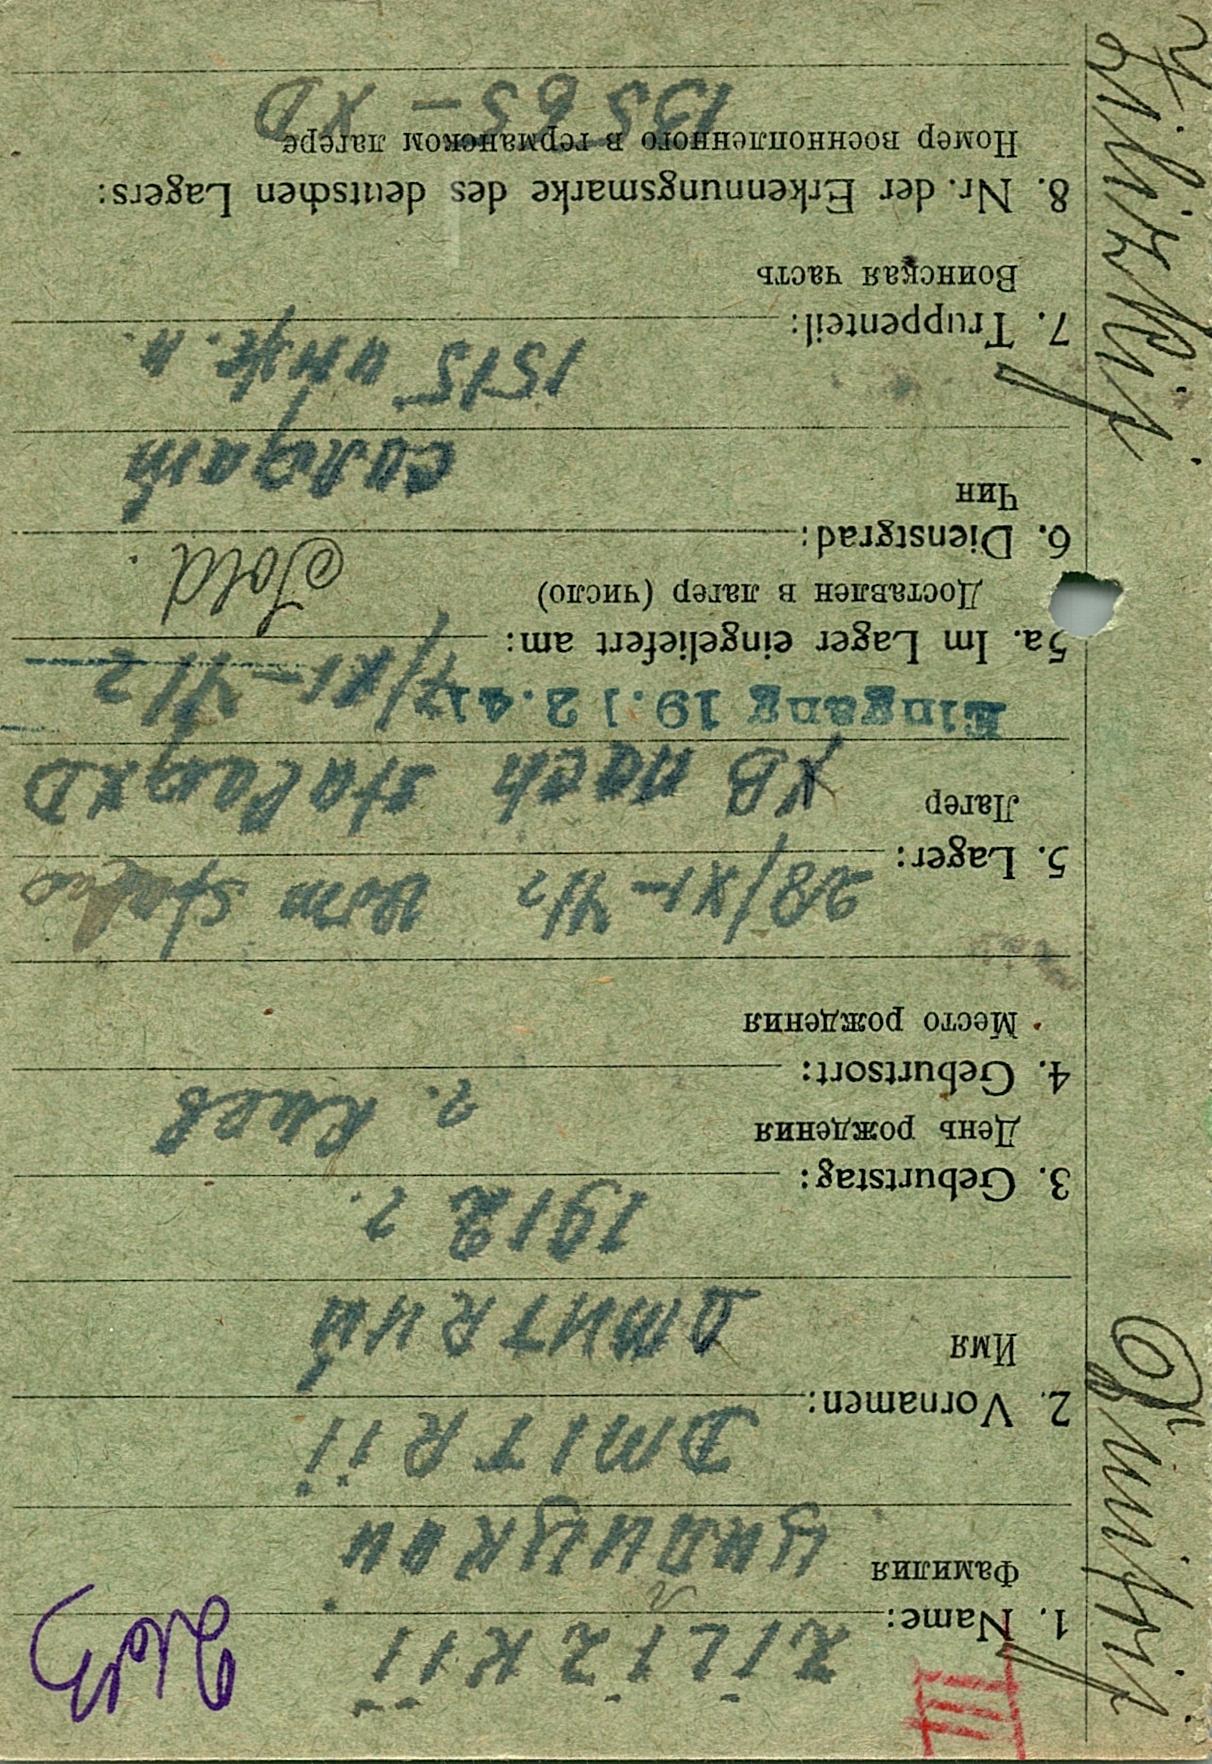 III
1. Name: ZILIZKII
Фамилия Цилицкии
2. Vornamen: DMITRII
Имя Дмитрий
3. Geburtstag: 1912 г.
День рождения
4. Geburtsort: г. Киев
Место рождения
5. Lager: 28/XI – 41 г vom stalag
Лагер XB nach stalag XD
Eingang 19.12.41
5a. Im Lager eingeliefert am: 7/XI – 41 г
Доставлен в лагер (число)
Sold.
6. Dienstgrad: солдат
Чин
7. Truppenteil: 1515 инж. п.
Воинская часть
8. Nr. der Erkennungsmarke des deutschen Lagers:
Номер военнопленного в германском лагере
13565 – XD
Dmitrij
Zilizkij